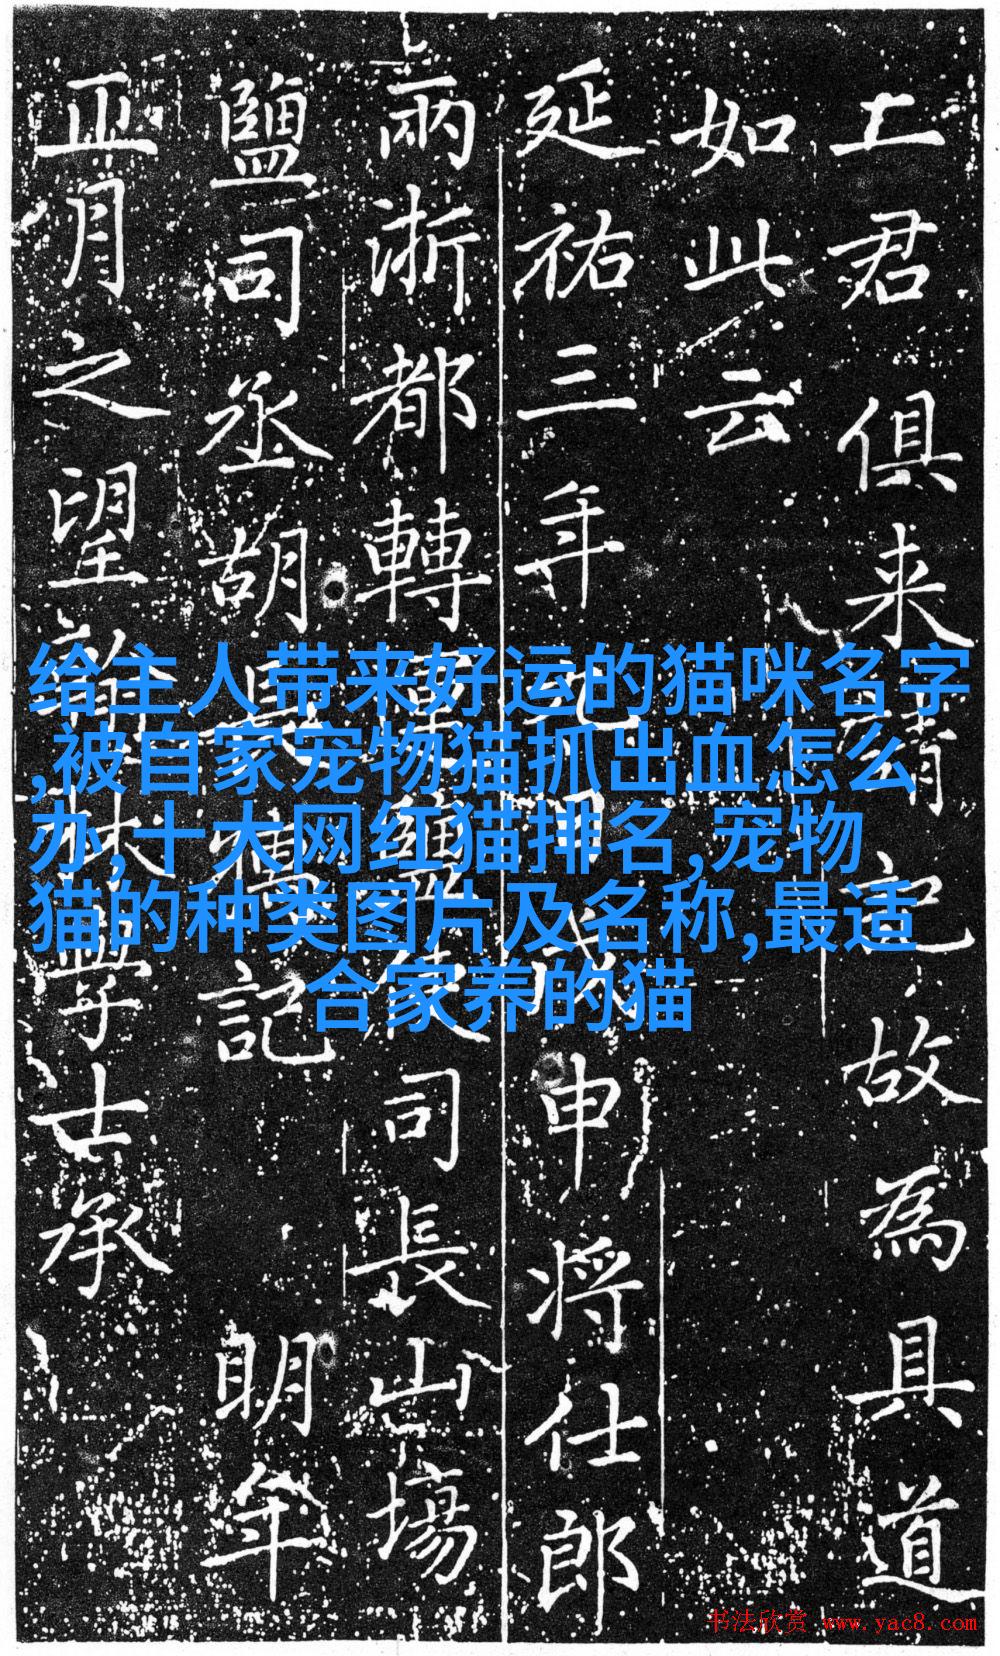 君俱来請記故為具道
如此云
延祐三年申将仕郎
兩浙都轉運鹽使司長山場
鹽司丞胡長孺記 明年
正月之望翰林學士承
给主人带来好运的猫咪名字
,被自家宠物猫抓出血怎么
办,十大网红猫排名,宠物
猫的种类图片及名称,最适
合家养的猫
书法欣赏 www.yac8.com